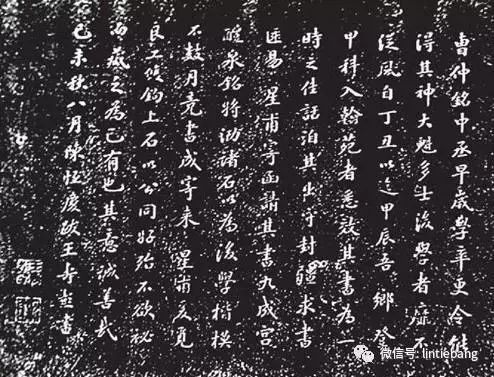 曹仲銘中丞早歲學率更令能
得其神大魁多士後學者靡不
從風自丁丑以迄甲辰吾鄉登
甲科入翰苑者悉效其書為一
時之佳話洎其出守封疆求書
匪易星甫寄函請其書九成宮
醴泉銘將泐諸石以為後學楷模
不數月竟書成寄來星甫爰覓
良工鈎上石以公同好殆不欲祕
而藏之為己有也其意誠善哉
己未秋八月陳恆慶跋王壽彭書
微信号: lintiebang